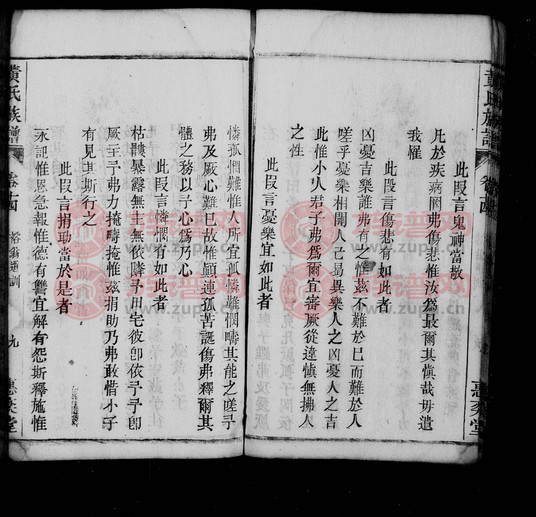 黃氏族譜
卷四
惠裘堂
此叚言鬼神當敬
凡於疾病罔弗傷悲惟汝爲最爾其愼哉毋遺
我罹
此叚言傷悲有如此者
凶憂吉樂誰弗有之惟兹不難於已而難於人
嗟乎憂樂相關人已易與樂人之凶憂人之吉
此惟小人君子弗爲爾宜審厥從違愼無拂人
之性
此叚言憂樂宜如此者
憐孤憫難惟人所宜孤憐難憫疇其能之嗟予
弗及厥心難已故惟願連孤苦誕傷弗釋爾其
體之務以予心爲乃心
此叚言憐憫有如此者
枯髏暴露無主無依隣予田宅彼卽依予予卽
厥主予弗力掩疇掩惟兹捐助乃弗敢惜小子
有見其斯行之
此叚言捐助當於是者
永記惟恩急報惟德有讐宜解有怨斯釋施惟
黃氏族譜
卷四
裕翁通訓
九
惠裘堂
族谱网
www.zupu.cn